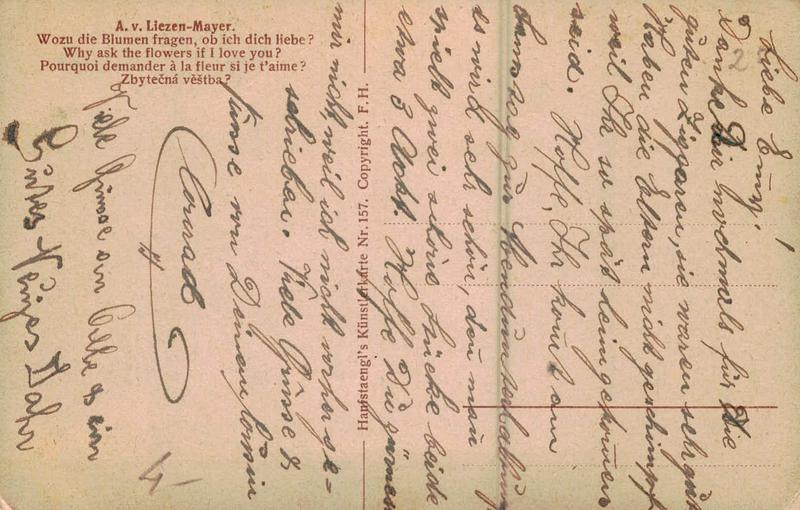 A. v. Liezen-Mayer.
Wozu die Blumen fragen, ob ich dich liebe?
Why ask the flowers if I love you?
Pourquoi demander à la fleur si je t'aime?
Zbytečná věštba?
Hanfstaengl's Künstlerkarte Nr. 157. Copyright. F. H.
Liebe Emy!
Danke Dir nochmals für die
guten Zigaren, sie waren sehr gut
Haben die Eltern nicht geschimpft
weil Ihr so spät heimgekommen
seid. Hoffe, Ihr komt am
Samstag zur Abendunterhaltung
es wird sehr schön, den man
spielt zwei schöne Stücke beide
etwa 3 Hoffe Du zürnest
mir nicht, weil ich nicht vorher ge-
schrieben. Viele Grüsse &
Küsse von Deinem
Conrad
Viele Grüsse an Alle & ein
Gutes Neujes Jahr
2
4.-